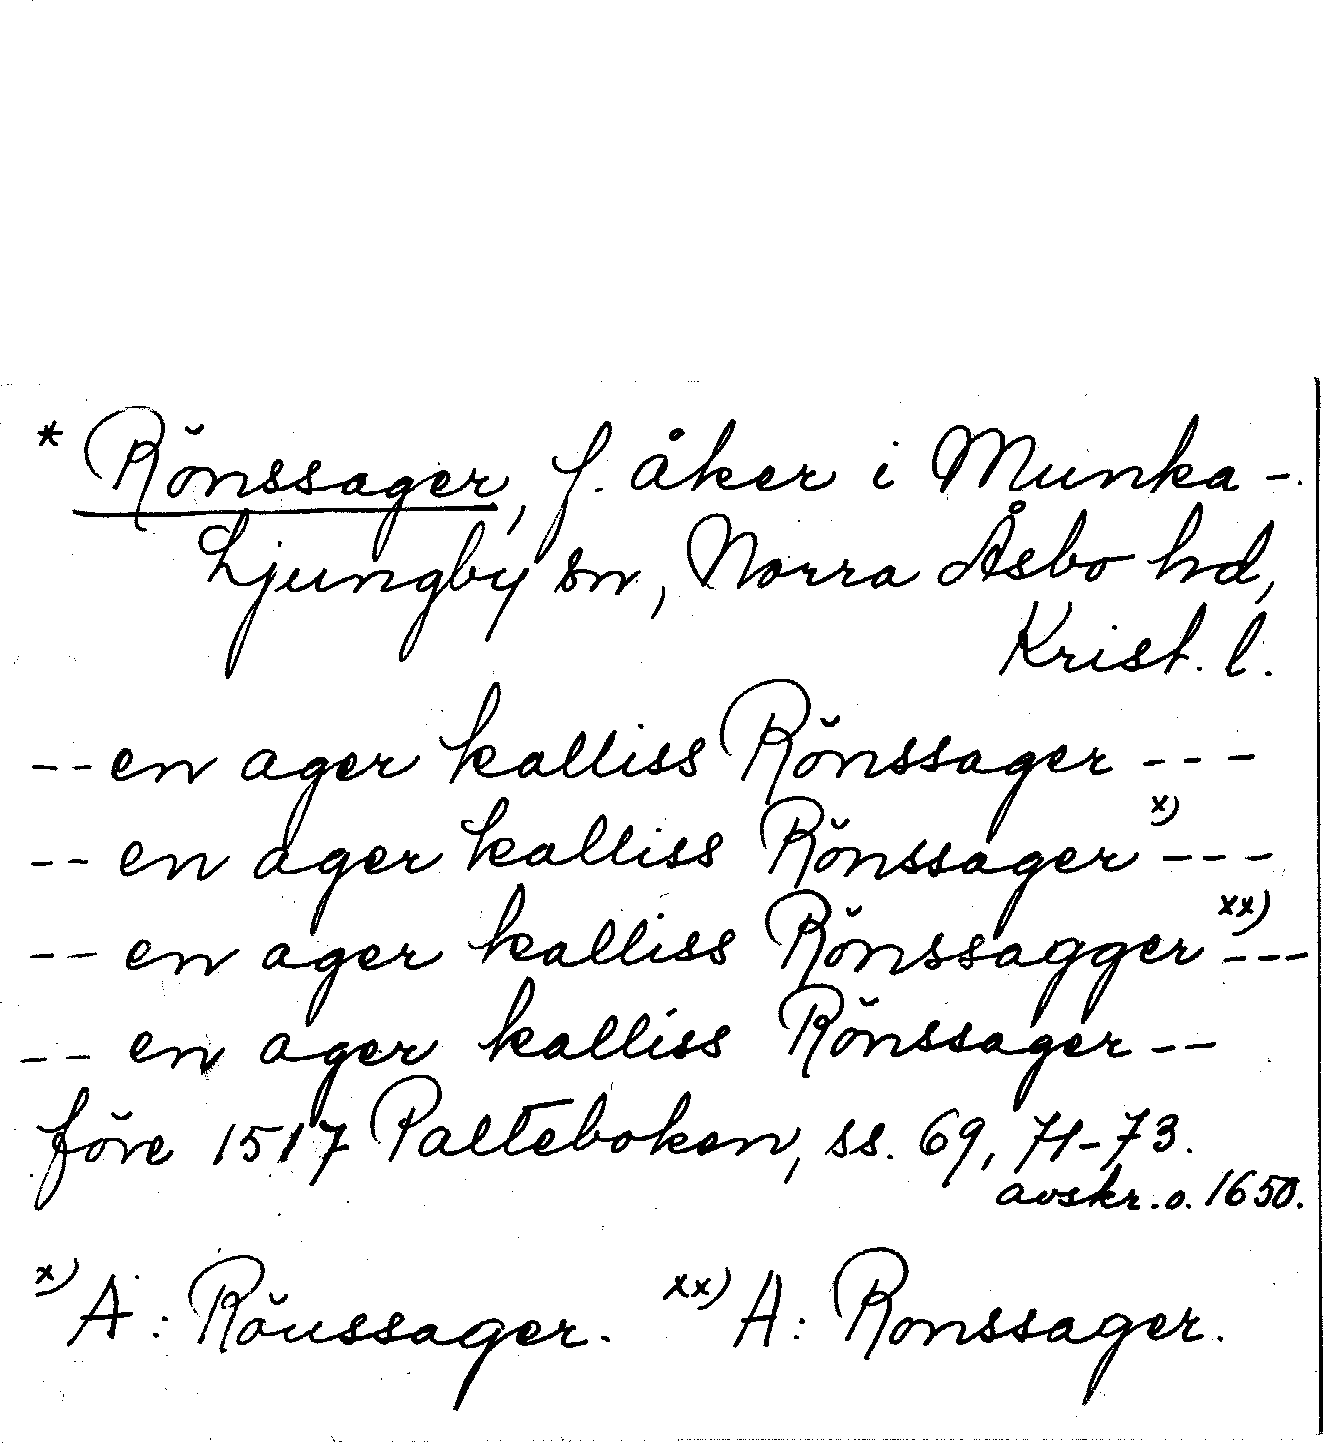 * Rŏnssager, f. åker i Munka-
Ljungby sn, Norra Åsbo hd,
Krist. l.
-- en ager kalliss Rŏnssager ---
-- en ager kalliss Rŏnssager x) ---
-- en ager kalliss Rŏnssagger xx) ---
-- en ager kalliss Rŏnssager --
fŏre 1517 Palteboken, ss. 69, 71-73.
avskr. o. 1650.
x) A: Rŏussager. xx) A: Ronssager.